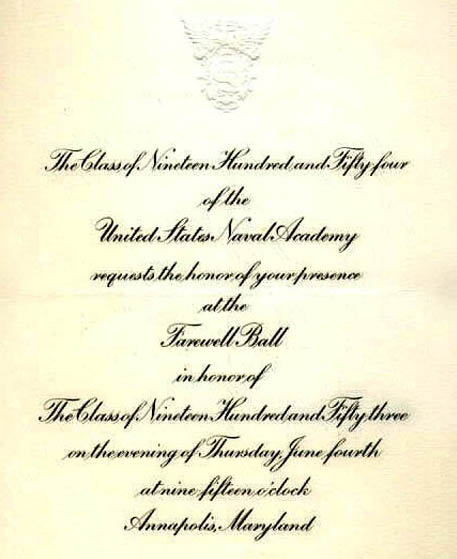 The Class of Nineteen Hundred and Fifty-four
of the
United States Naval Academy
requests the honor of your presence
at the
Farewell Ball
in honor of
The Class of Nineteen Hundred and Fifty three
on the evening of Thursday, June fourth
at nine fifteen o'clock
Annapolis, Maryland